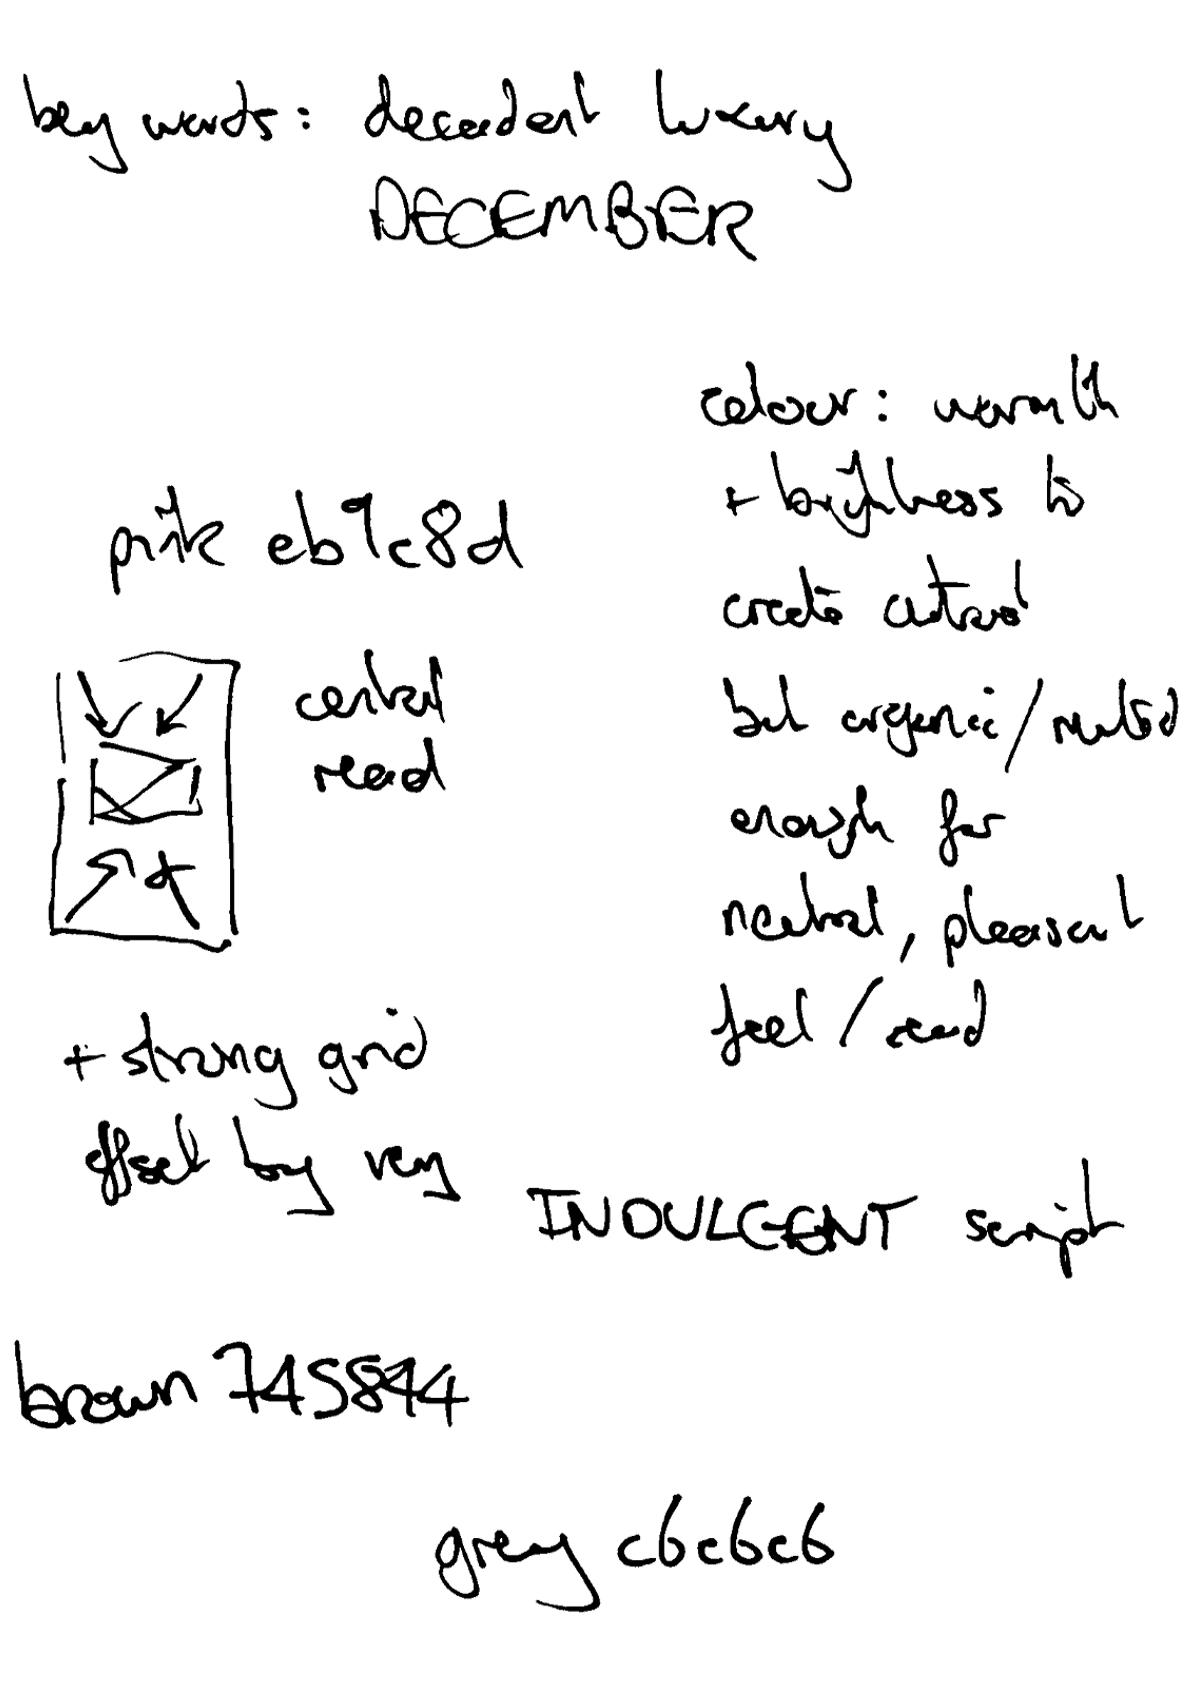 key words: decadent luxury
DECEMBER
colour: warmth
+ brightness to
create contrast
but organic/muted
enough for
neutral, pleasant
feel/read
pink eb9c8d
central
read
+ strong grid
offset by very
INDULGENT script
brown 745844
grey c6c6c6